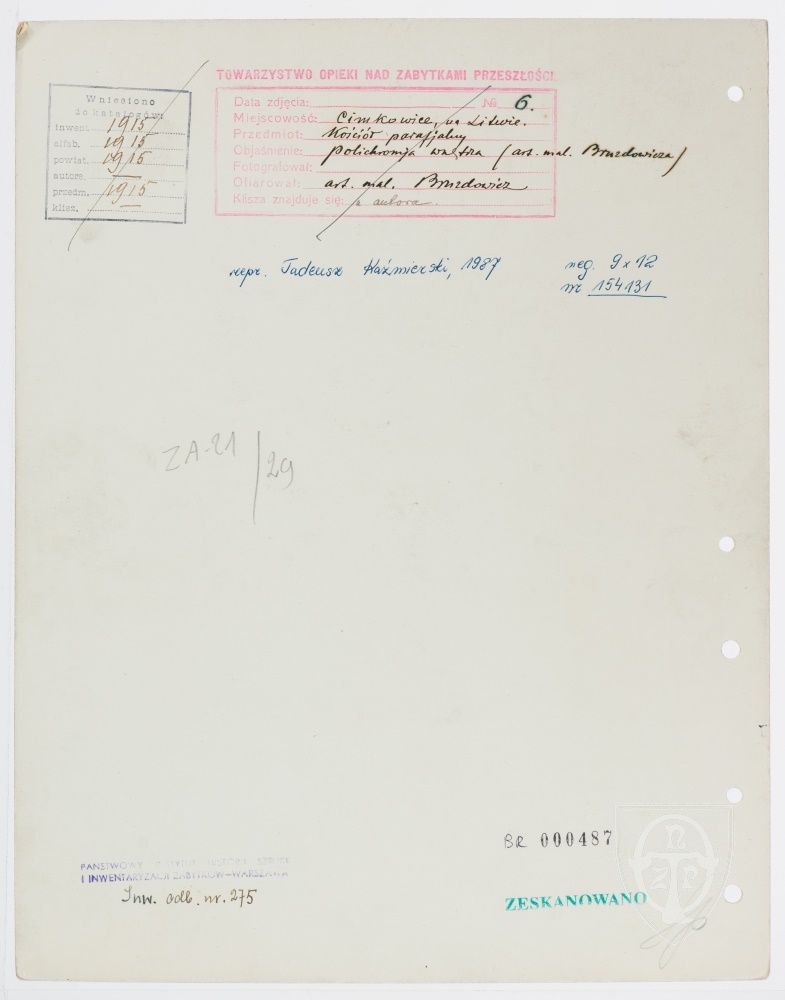 TOWARZYSTWO OPIEKI NAD ZABYTKAMI PRZESZŁOŚCI
Wniesiono
do katalogów:
inwent. 1915
alfab. 1915
powiat. 1915
autors.
przedm. 1915
klisz.
Data zdjęcia: № 6.
Miejscowość: Cimkowice, na Litwie.
Przedmiot: Kościół parafjalny
Objaśnienie: Polichromja wnętrza (art. mal. Bruzdowicza)
Fotografował:
Ofiarował: art. mal. Bruzdowicz
Klisza znajduje się: u autora.
repr. Tadeusz Kaźmierski, 1987 neg. 9x12
nr 154131
ZA-21/29
BR 000487
PAŃSTWOWY INSTYTUT HISTORII SZTUKI
I INWENTARYZACJI ZABYTKÓW—WARSZAWA
Inw. odb. nr. 275
ZESKANOWANO
N
Z P